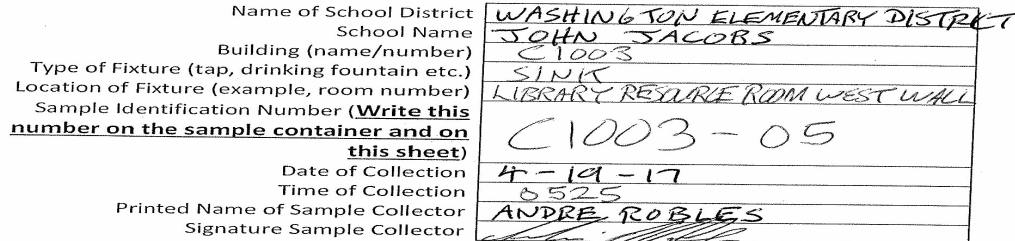 Name of School District WASHINGTON ELEMENTARY DISTRICT
School Name JOHN JACOBS
Building (name/number) C1003
Type of Fixture (tap, drinking fountain etc.) SINK
Location of Fixture (example, room number) LIBRARY RESOURCE ROOM WEST WALL
Sample Identification Number (Write this
number on the sample container and on C1003-05
this sheet)
Date of Collection 4-19-17
Time of Collection 0525
Printed Name of Sample Collector ANDRE ROBLES
Signature Sample Collector